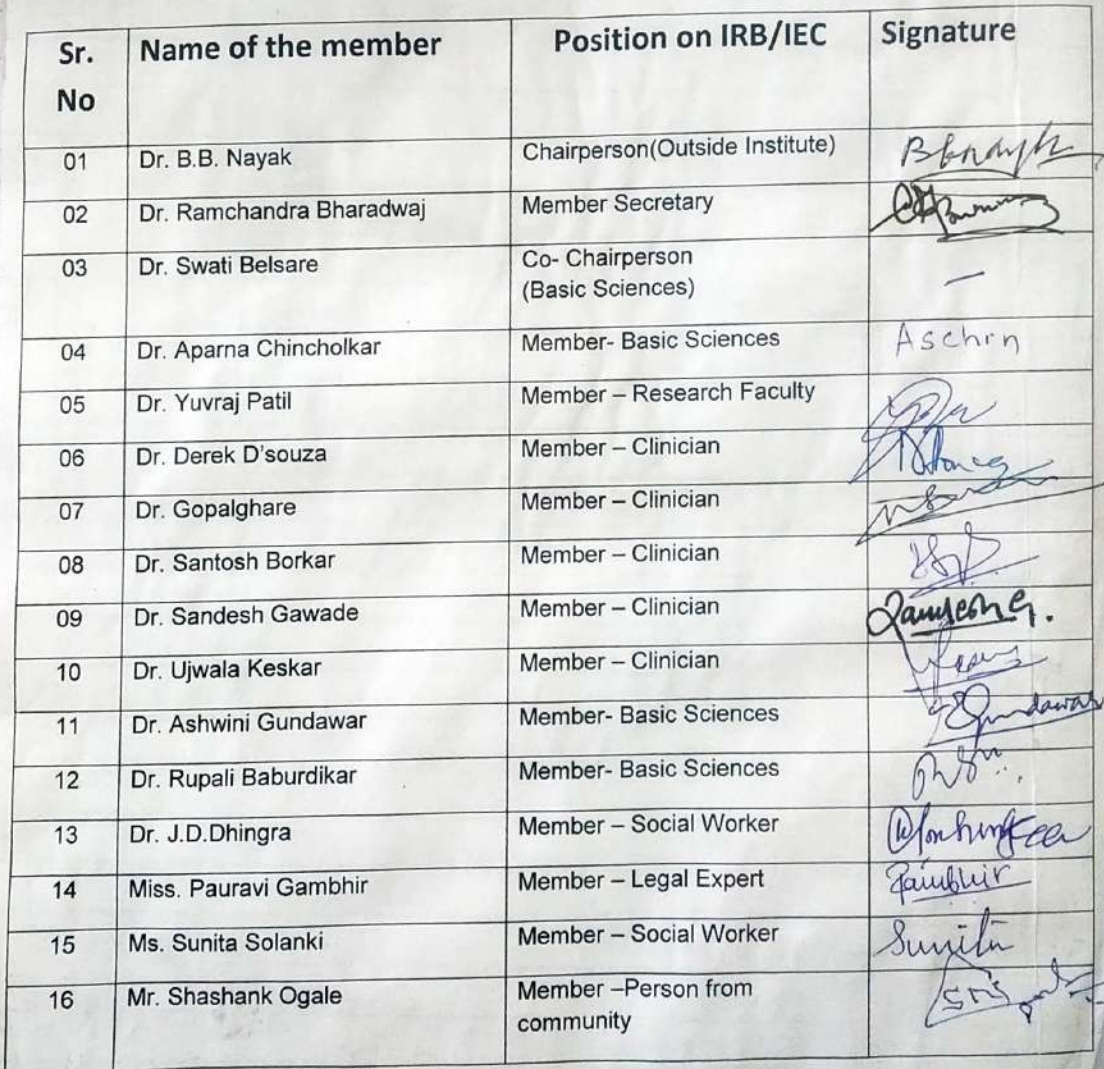 Sr. No Name of the member Position on IRB/IEC Signature
01 Dr. B.B. Nayak Chairperson(Outside Institute) BBnayak
02 Dr. Ramchandra Bharadwaj Member Secretary
03 Dr. Swati Belsare Co- Chairperson
(Basic Sciences) —
04 Dr. Aparna Chincholkar Member- Basic Sciences Aschin
05 Dr. Yuvraj Patil Member – Research Faculty
06 Dr. Derek D'souza Member – Clinician
07 Dr. Gopalghare Member – Clinician
08 Dr. Santosh Borkar Member – Clinician
09 Dr. Sandesh Gawade Member – Clinician
10 Dr. Ujwala Keskar Member – Clinician
11 Dr. Ashwini Gundawar Member- Basic Sciences Gundawar
12 Dr. Rupali Baburdikar Member- Basic Sciences
13 Dr. J.D.Dhingra Member – Social Worker
14 Miss. Pauravi Gambhir Member – Legal Expert
15 Ms. Sunita Solanki Member – Social Worker Sunita
16 Mr. Shashank Ogale Member –Person from
community